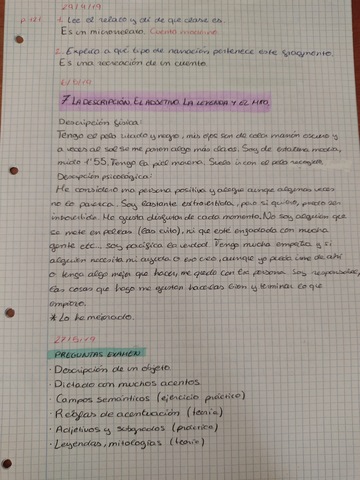 29/4/19
p. 121 1. Lee el relato y di de que clase es.
Es un microrrelato. Cuento moderno
2. Explica a qué tipo de narración pertenece este fragmento.
Es una recreación de un cuento.
6/5/19
7 LA DESCRIPCIÓN. EL ADJETIVO. LA LEYENDA Y EL MITO.
Descripción física:
Tengo el pelo y negro, mis ojos son de color marrón oscuro y
a veces al sol se me ponen algo más claros. Soy de estatura media,
mido 1'55. Tengo la piel morena. Suelo ir con el pelo
Descripción psicológica:
Me considero una persona positiva y alegre aunque algunas veces
no lo parezca. Soy bastante extrovertida, pero si quiero, puedo ser
introvertida. Me gusta disfrutar de cada momento. No soy alguien que
se mete en peleas (las evito), ni que esté enfadada con mucha
gente etc..., soy pacífica la verdad. Tengo mucha empatía y si
alguien necesita mi ayuda o eso creo, aunque yo pueda irme de ahí
o tenga algo mejor que hacer, me quedo con esa persona. Soy responsable,
las cosas que hago me gustan hacerlas bien y terminar lo que
empiezo.
* Lo he mejorado.
27/5/19
PREGUNTAS EXAMEN
· Descripción de un objeto
· Dictado con muchos acentos
· Campos semánticos (ejercicio práctico)
· Reglas de acentuación (teoría)
· Adjetivos y subgrados (práctica)
· Leyendas, mitologías (teoría)